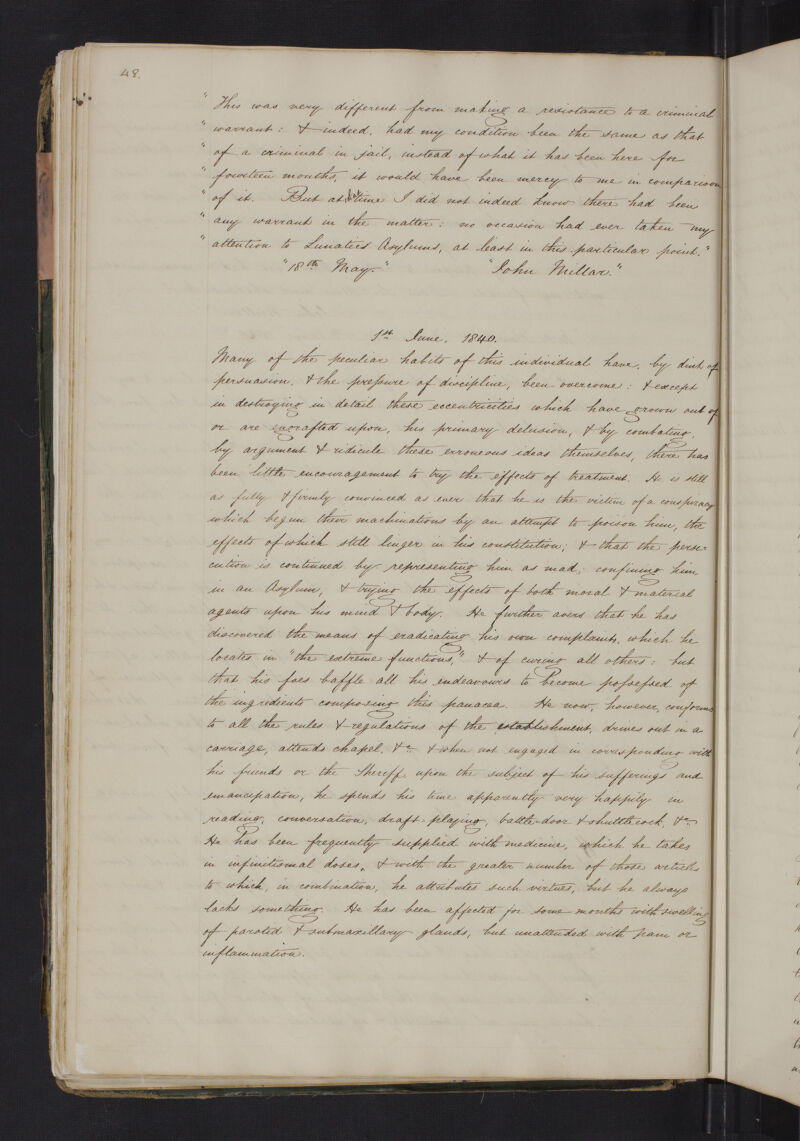 48.
" This was very different from making a resistance to a criminal
" warrant: & indeed, had my condition been the same as that
" of a criminal in jail, instead of what it has been here for
" fourteen months, it would have been mercy to me in comparison
" of it. But at that time I did not indeed know there had been
" any warrant in the matter: no occasion had ever taken my
" attention to Lunatics Asylums, at least in this particular point."
"18th May." "John Millar."
1st June, 1840.
Many of the peculiar habits of this individual have, by dint of
persuasion, & the pressure of discipline, been overcome: & except
in destroying in detail these eccentricities which have grown out of
or are engrafted upon, his primary delusion, & by combating,
by argument & ridicule these erroneous ideas themselves, there has
been little encouragement to try the effects of treatment. He is still
as fully & firmly convinced as ever that he is the victim of a conspiracy
which begun their machinations by an attempt to poison him, the
effects of which still linger in his constitution; & that the perse-
cution is continued by representing him as mad; confining him
in an Asylum, & trying the effects of both moral & material
agents upon his mind & body. He further avers that he has
discovered the means of eradicating his own complaints, which he
locates in "the extreme functions," & of curing all others: but
that his foes baffle all his endeavours to become possessed of
the ingredients composing this panacea. He now, however, conforms
to all the rules & regulations of the establishment, drives out in a
carriage, attends chapel, &c & when not engaged in corresponding with
his friends or the Sheriff upon the subject of his sufferings and
emancipation, he spends his time apparently very happily in
reading, conversation, draft-playing, battle-door & shuttlecock, &c
He has been frequently supplied with medicine, which he takes
in infinitismal doses, & with the greater number of those articles
to which, in combination, he attributes such virtues, but he always
lacks something. He has been affected for some months with swelling
of parotid & submaxillary glands, but unattended with pain or
inflammation.